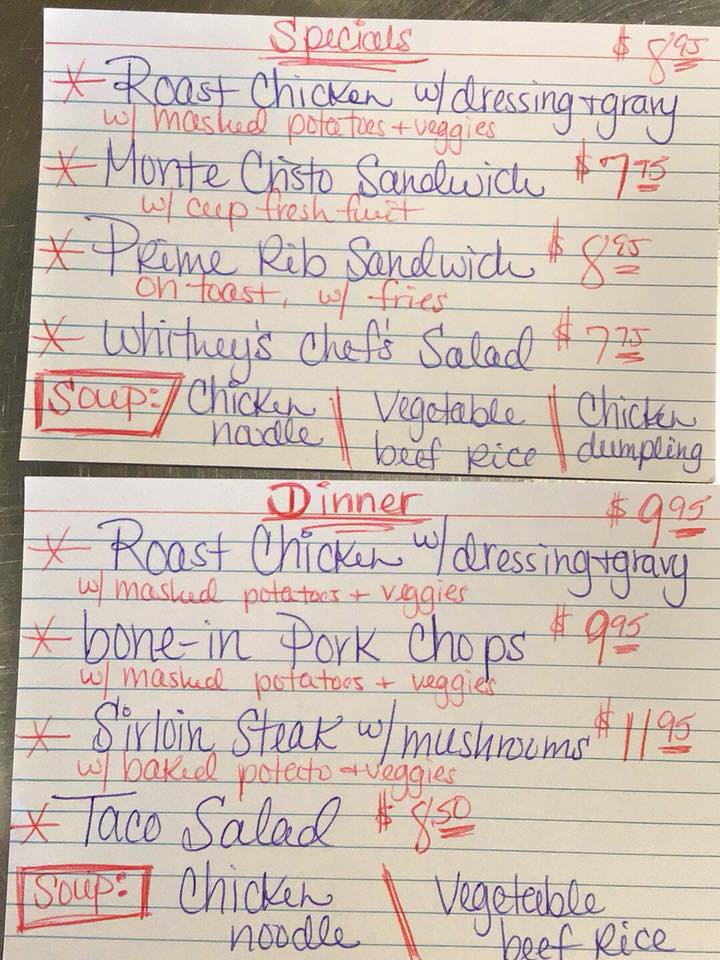 Specials $8.95
* Roast Chicken w/dressing+gravy
w/ mashed potatoes + veggies
* Monte Cristo Sandwich $7.75
w/ cup fresh fruit
* Prime Rib Sandwich $8.95
on toast, w/ fries
* Whitney's Chef's Salad $7.75
Soup: Chicken | Vegetable | Chicken
noodle beef rice dumpling
Dinner $9.95
* Roast Chicken w/dressing+gravy
w/ mashed potatoes + veggies
* bone-in Pork Chops $9.95
w/ mashed potatoes + veggies
* Sirloin Steak w/mushrooms $11.95
w/ baked potato + veggies
* Taco Salad $8.50
Soup: Chicken \ Vegetable
noodle beef rice